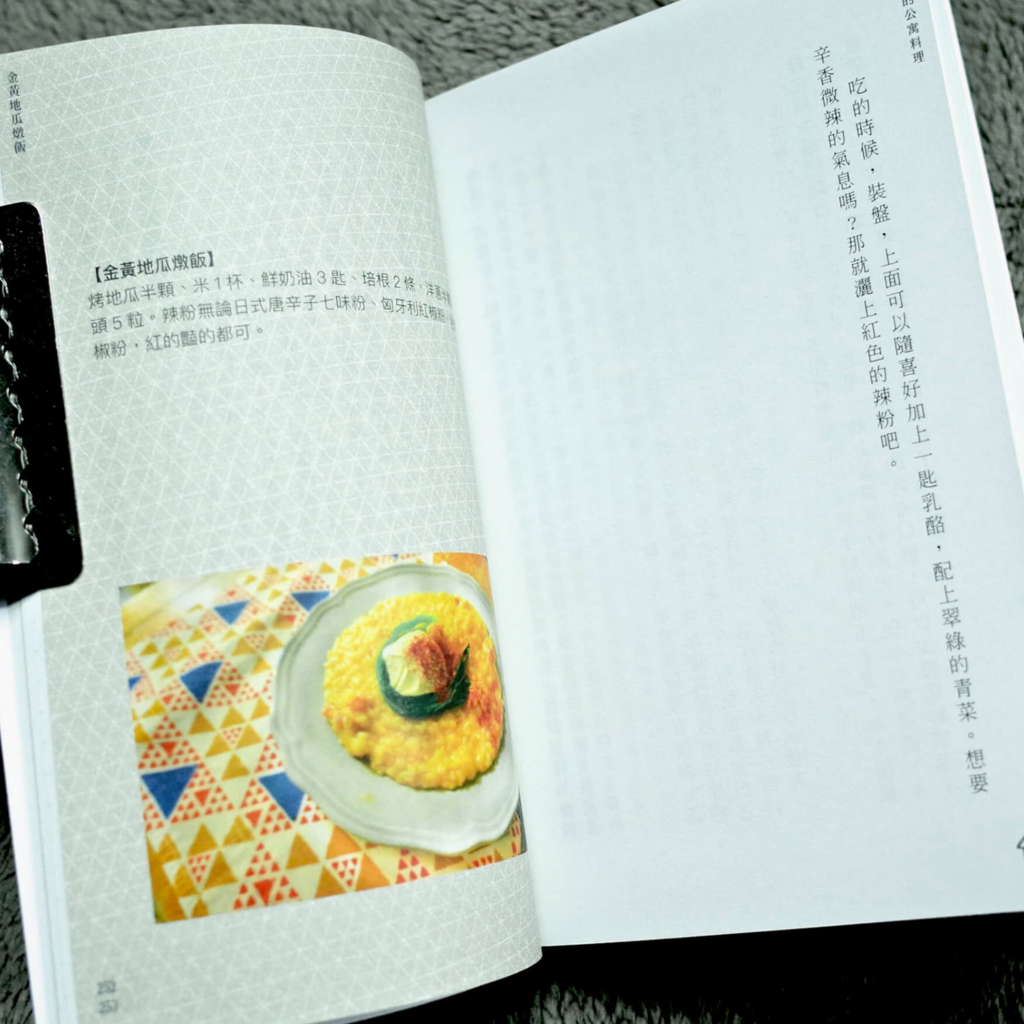 的公寓料理
吃的時候，裝盤，上面可以隨喜好加上一匙乳酪，配上翠綠的青菜。想要
辛香微辣的氣息嗎？那就灑上紅色的辣粉吧。
金黃地瓜燉飯
【金黃地瓜燉飯】
烤地瓜半顆、米1杯、鮮奶油3匙、培根2條、洋蔥半
頭5粒。辣粉無論日式唐辛子七味粉、匈牙利紅椒粉、
椒粉，紅的豔的都可。
252
253